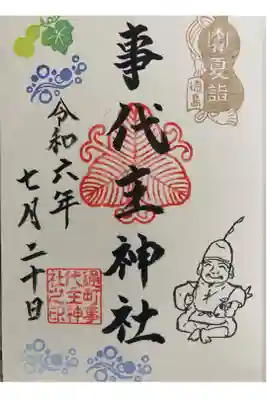 夏詣
徳島
事代主神社
令和六年
七月二十日
通町事
代主神
社之印